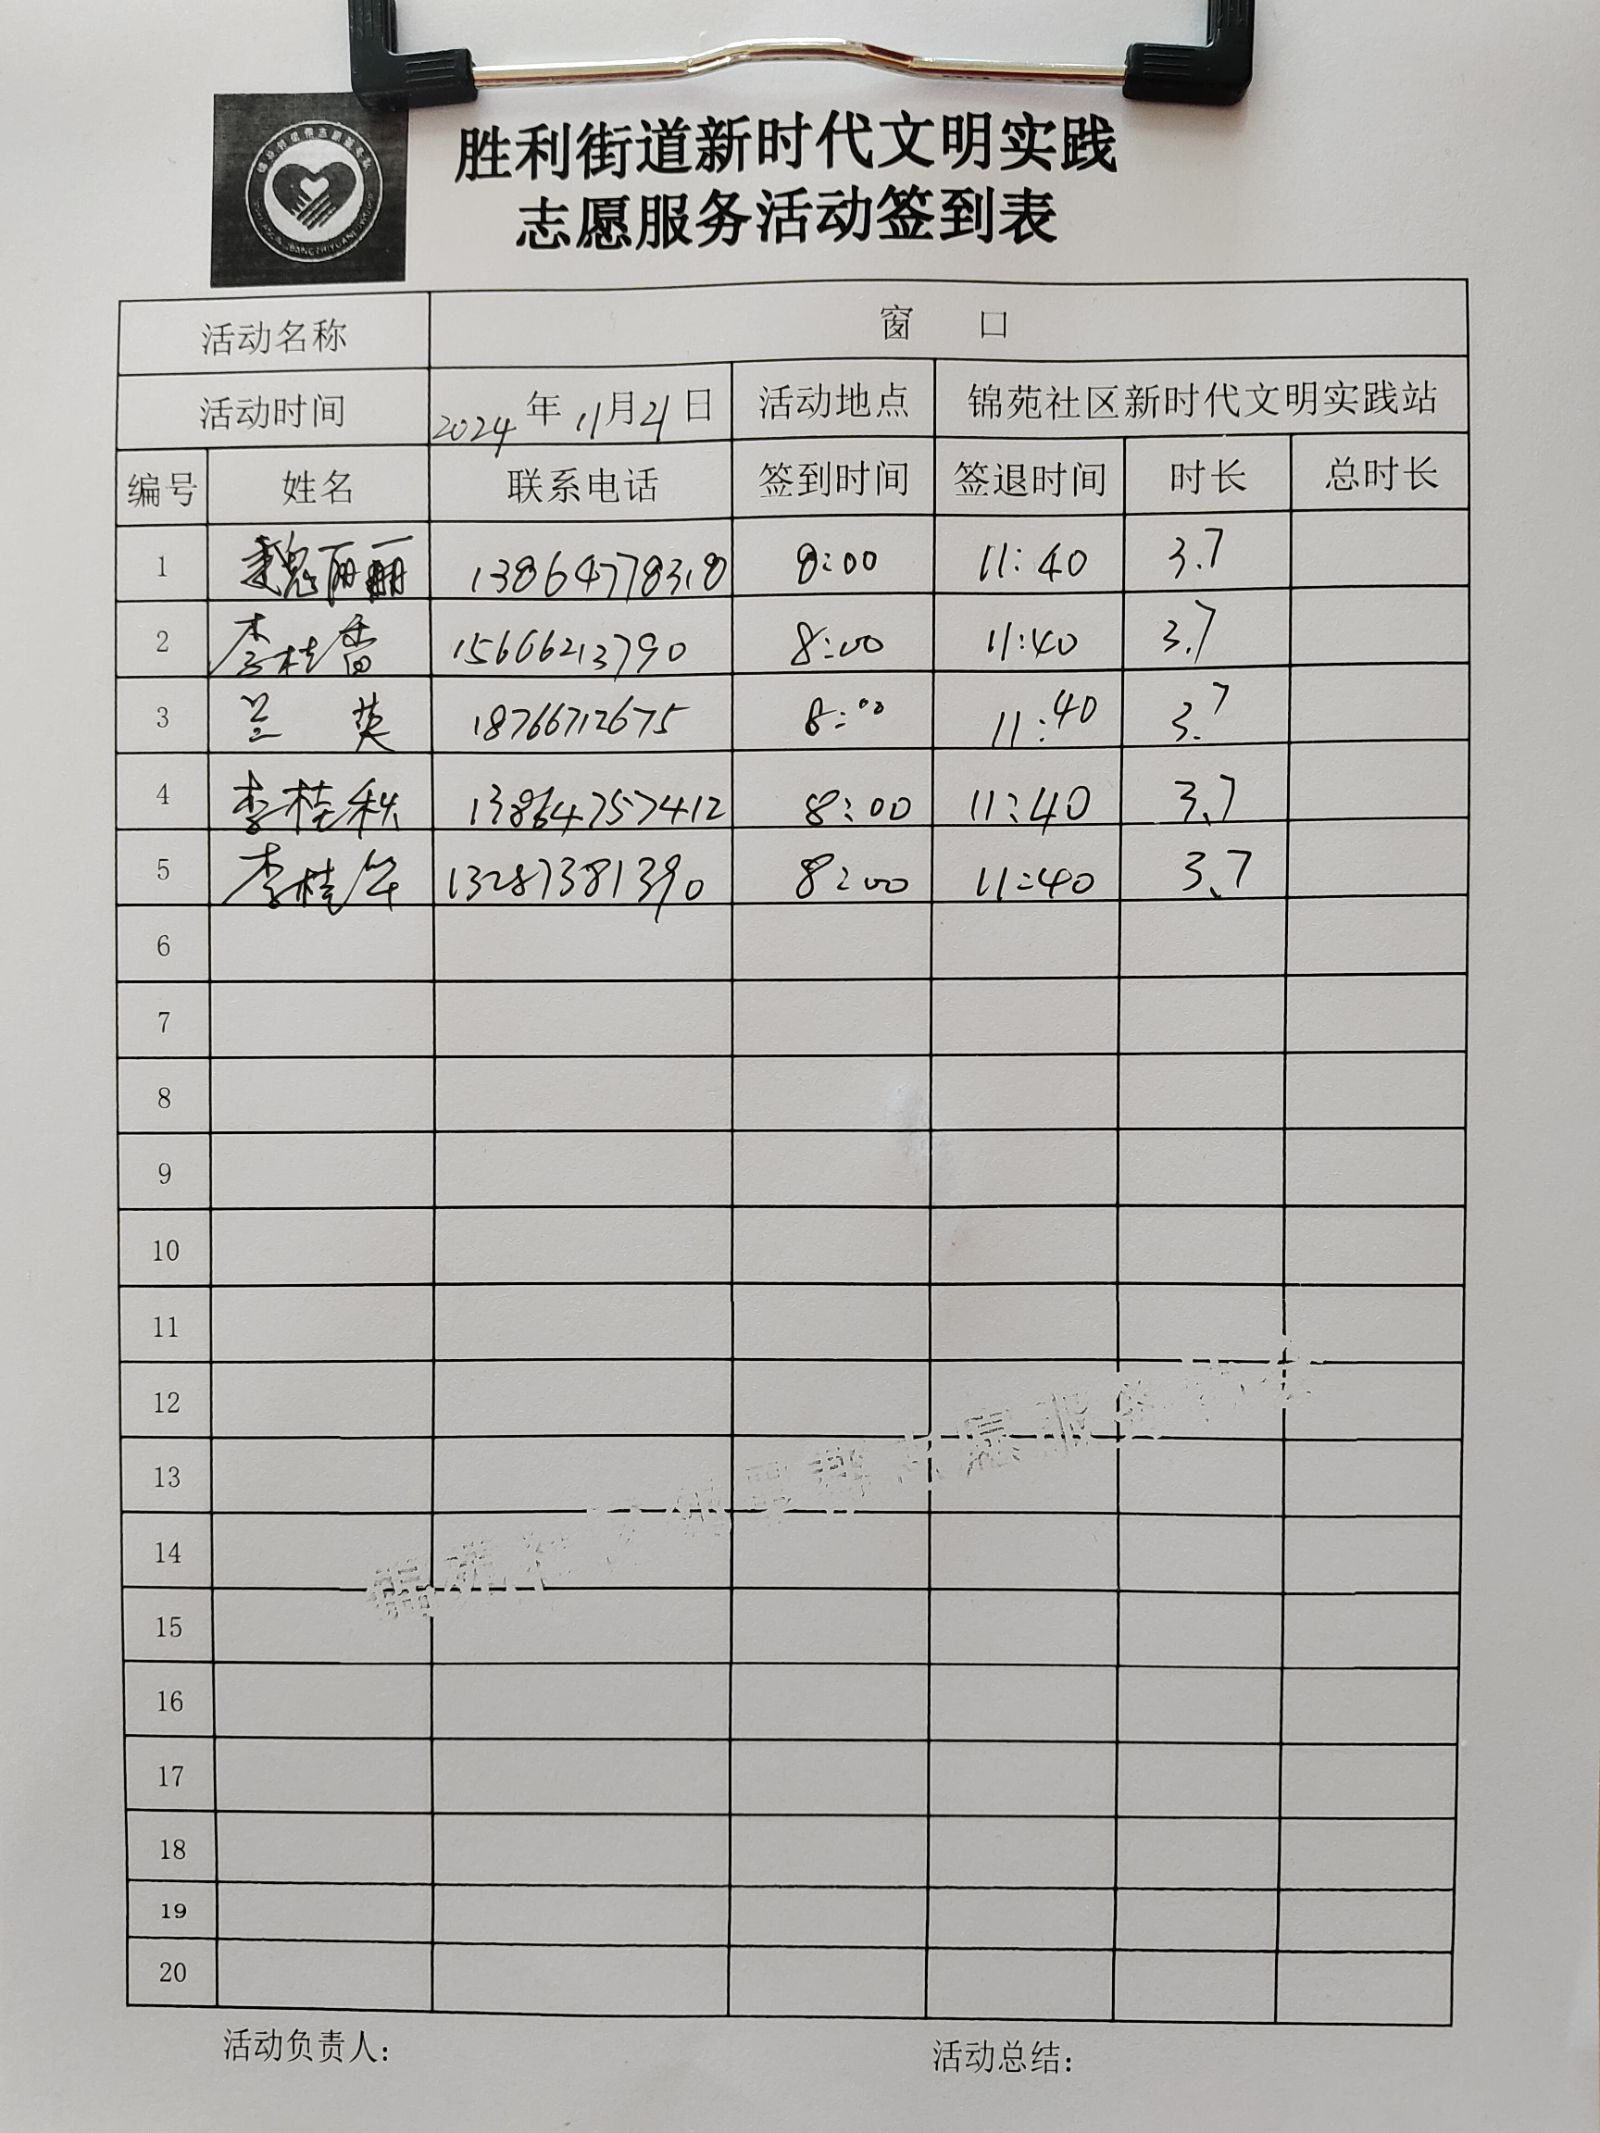 胜利街道新时代文明实践
志愿服务活动签到表
活动名称 窗 口
活动时间 2024年11月21日 活动地点 锦苑社区新时代文明实践站
编号 姓名 联系电话 签到时间 签退时间 时长 总时长
1 魏丽丽 13864778318 8:00 11:40 3.7
2 李桂香 15666213790 8:00 11:40 3.7
3 兰英 18766712675 8:00 11:40 3.7
4 李桂秋 13864757412 8:00 11:40 3.7
5 李桂华 13287381390 8:00 11:40 3.7
6
7
8
9
10
11
12
13
14
15
16
17
18
19
20
活动负责人: 活动总结: